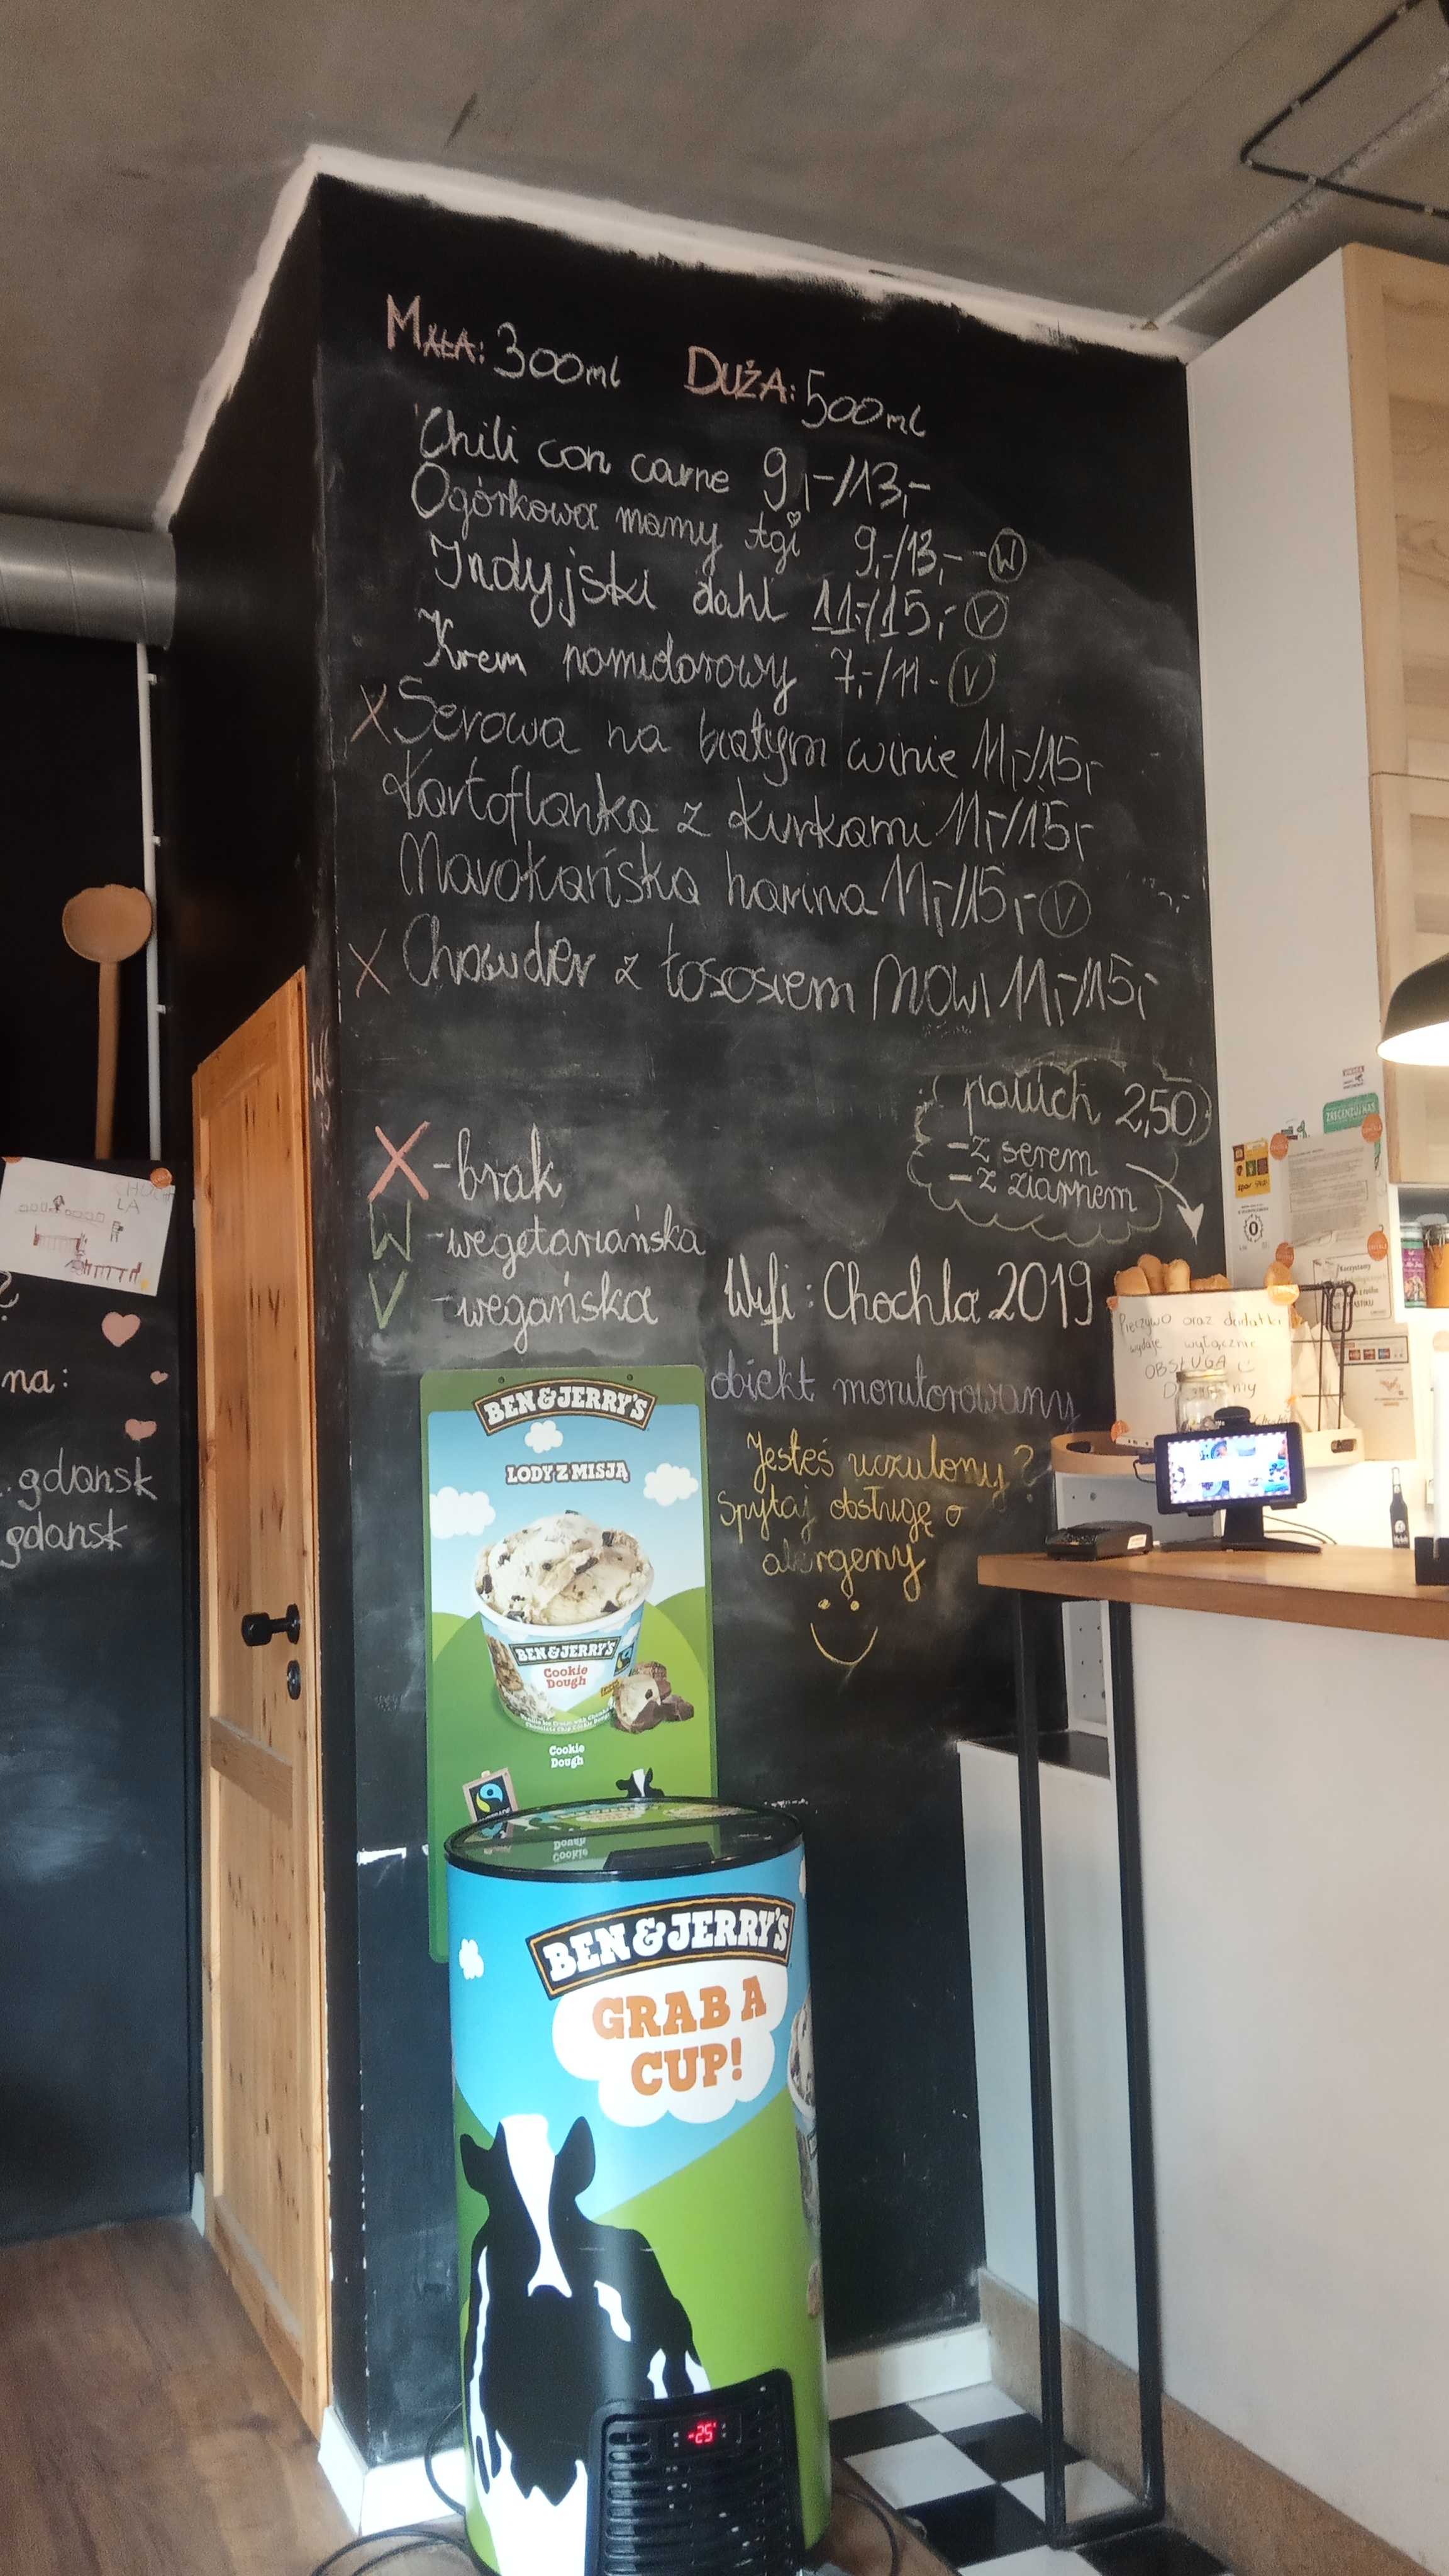 MAŁA: 300ml DUŻA: 500ml
Chili con carne 9,-/13,-
Ogórkowa mamy Agi 9,-/13,- -W
Indyjski dahl 11,-/15,- V
Krem pomidorowy 7,-/11- V
X Serowa na białym winie 11,-/15,-
Kartoflanka z kurkami 11,-/15,-
Marokańska harira 11,-/15,- V
X Chowder z łososiem MOWI 11,-/15,-
paluch 2,50
-z serem
-z ziarnem
X -brak
W -wegetariańska
V -wegańska
Wifi: Chochla 2019
obiekt monitorowany
Jesteś uczulony?
Spytaj obsługę o
alergeny
Pieczywo oraz dodatki
wydaje wyłącznie
OBSŁUGA
CHOCHLA
na:
gdansk
gdansk
BEN & JERRY'S
LODY Z MISJĄ
BEN & JERRY'S
Cookie
Dough
Cookie
Dough
BEN & JERRY'S
GRAB A
CUP!
-25°
ZRECENZUJ NAS